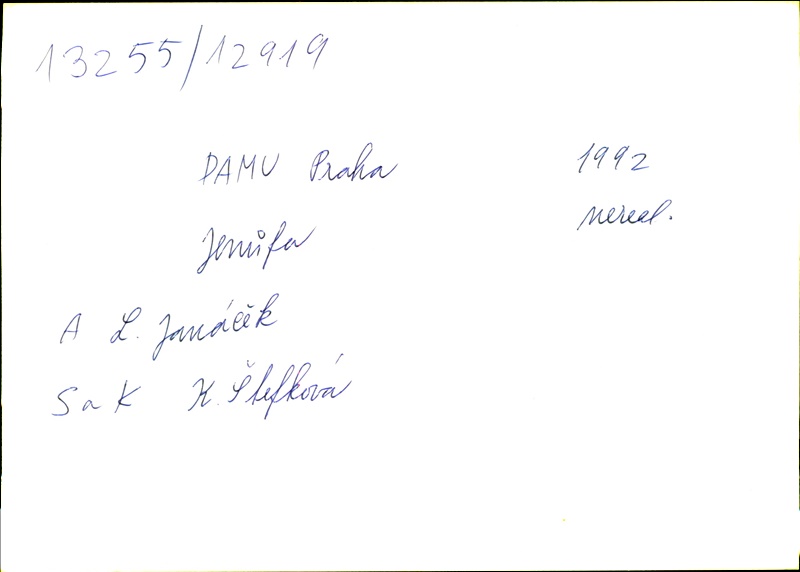 13255/12919
DAMU Praha 1992
Jenůfa nereal.
A L. Janáček
S a K K. Štefková